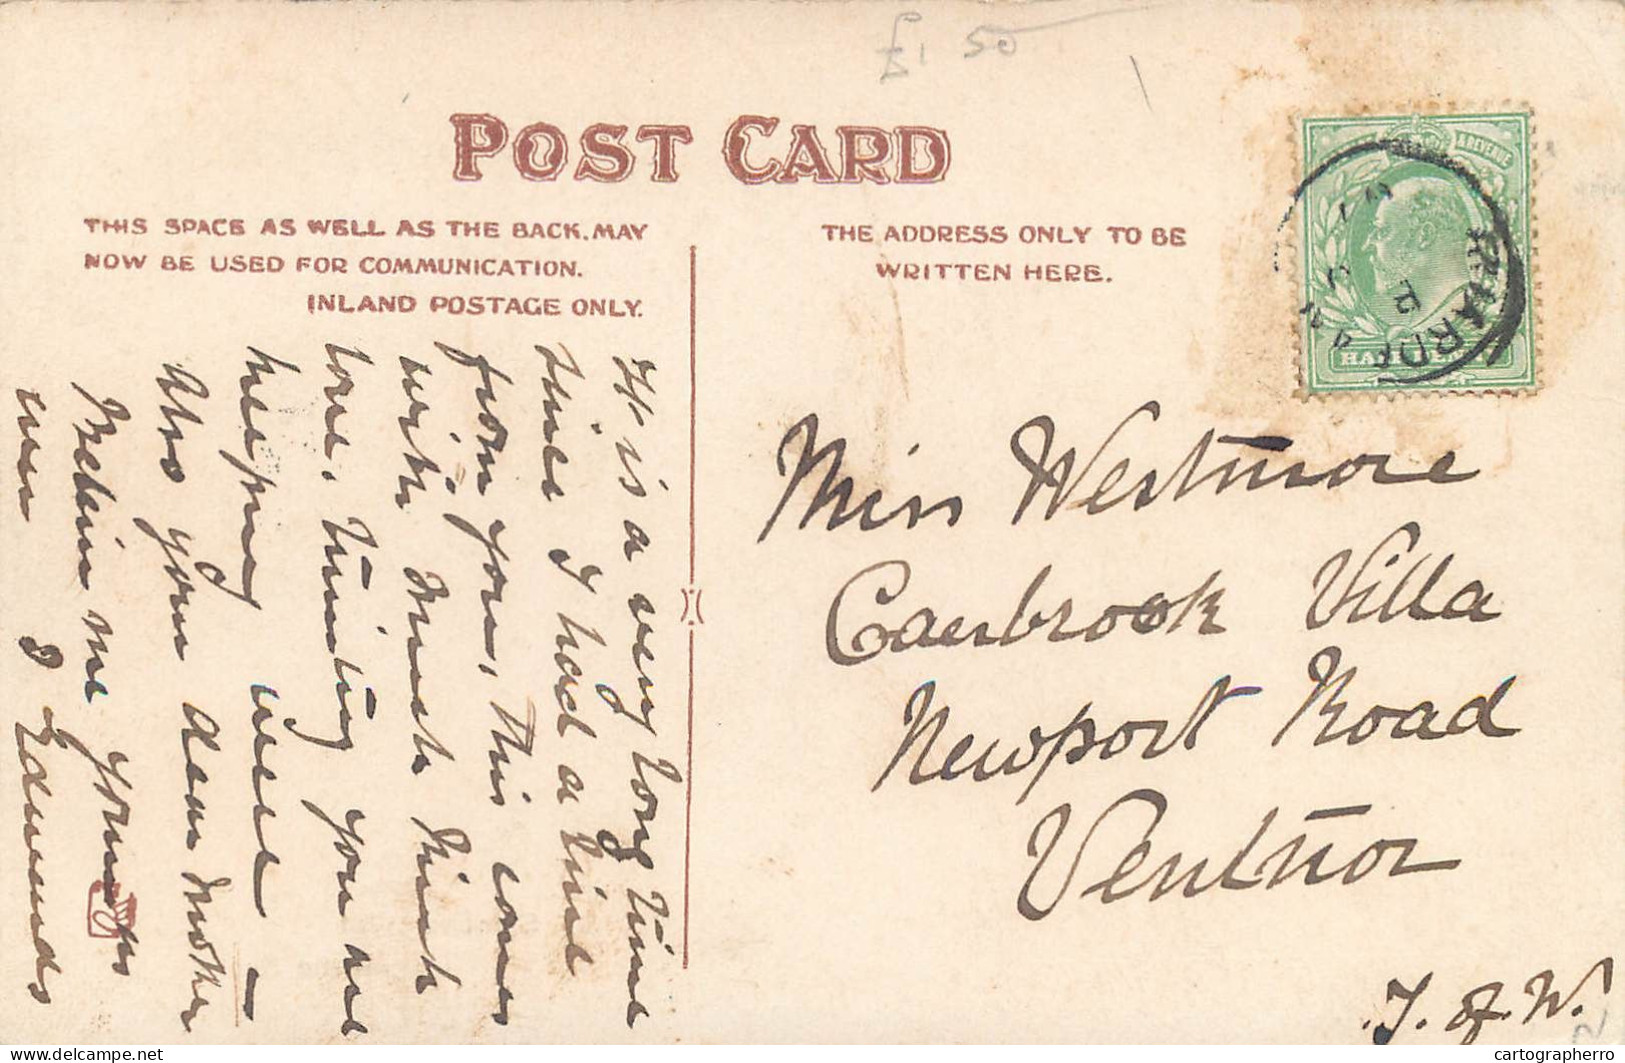 £1 50
POST CARD
THIS SPACE AS WELL AS THE BACK, MAY
NOW BE USED FOR COMMUNICATION.
INLAND POSTAGE ONLY.
THE ADDRESS ONLY TO BE
WRITTEN HERE.
& REVENUE
HALFPENNY
It is a very long time
since I had a line
from you, this comes
with much kind
love, trusting you are
keeping well –
Also your dear Mother
Believe me yours
ever
J Edmunds
Miss Westmore
Carsbrook Villa
Newport Road
Ventnor
I. of. W.
delcampe.net
cartographerro